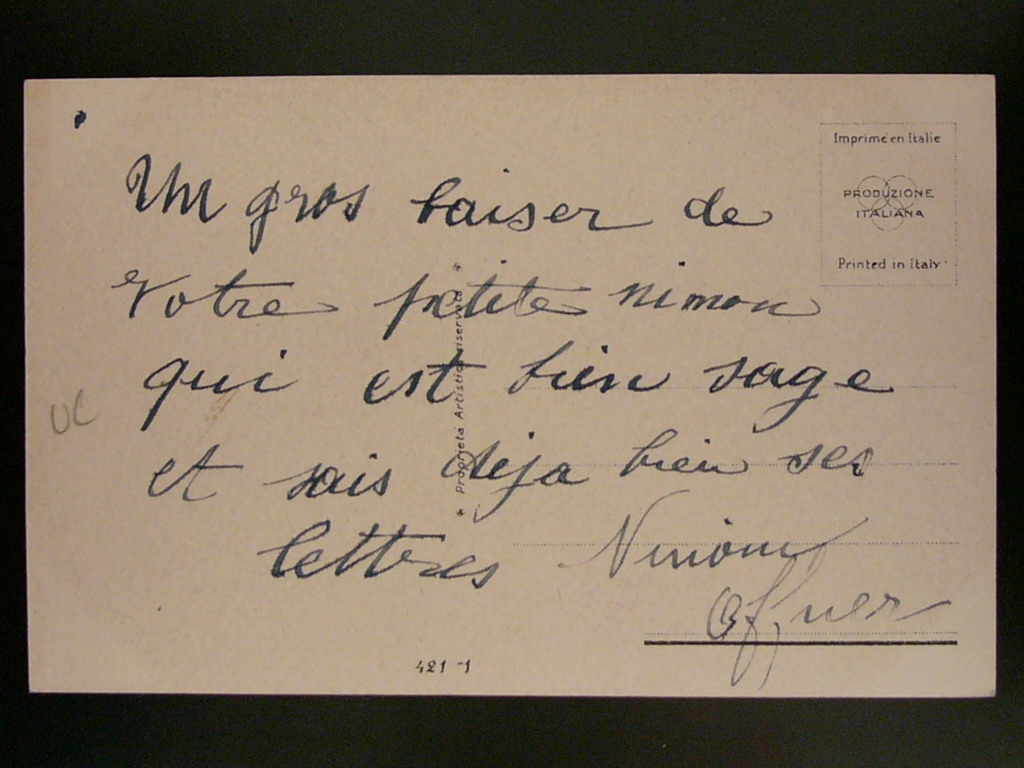 Imprimé en Italie
PRODUZIONE
ITALIANA
Printed in Italy
Un gros baiser de
Votre petite ninon
qui est bien sage
et sais deja bien ses
lettres
Offner
* Proprietà Artistica riservata *
UC
421-1